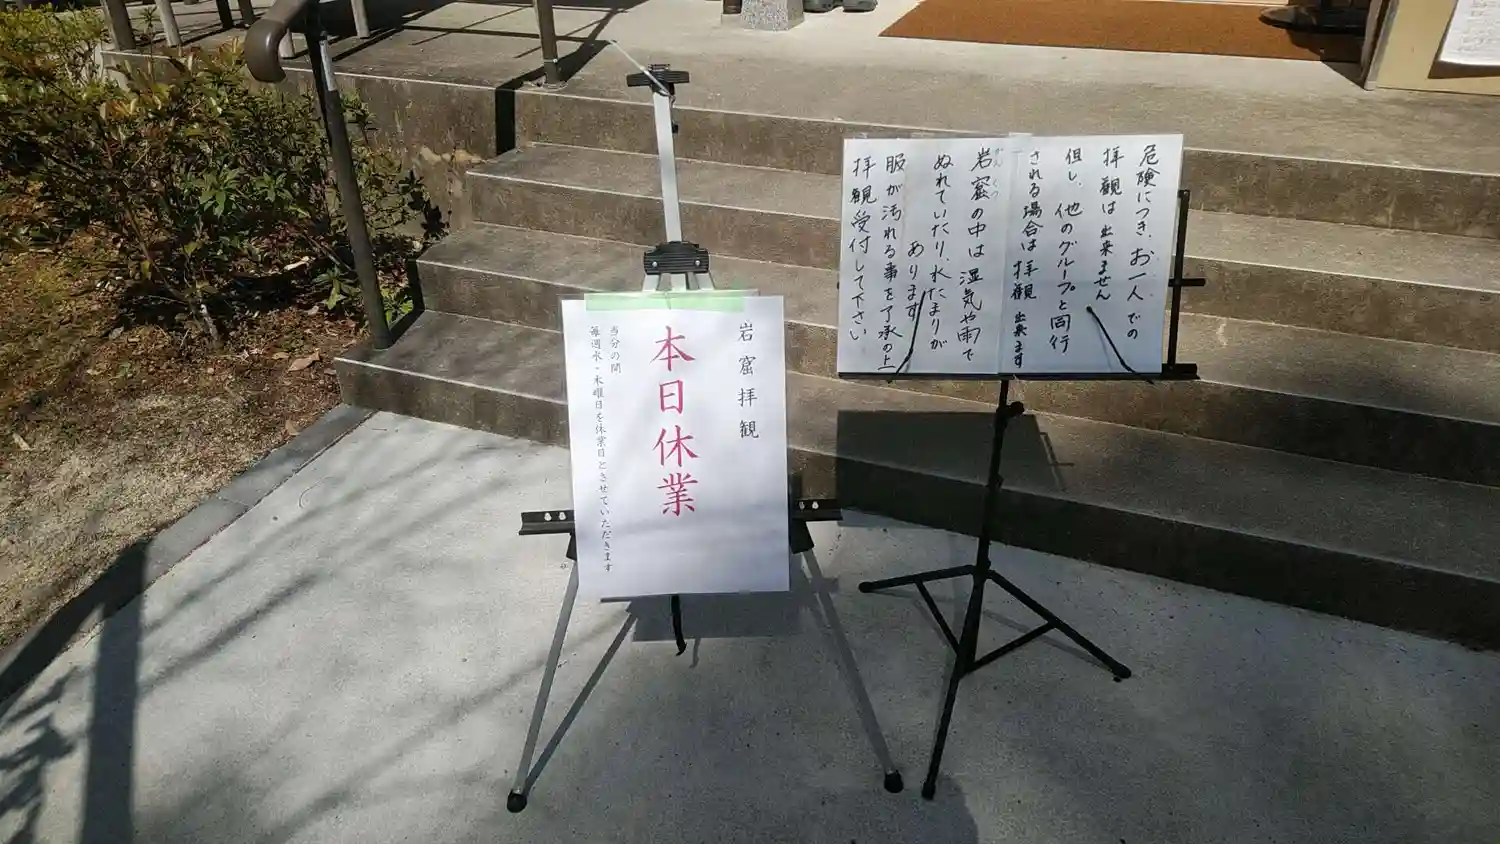 岩窟拝観
本日休業
当分の間
毎週水・木曜日を休業日とさせていただきます
危険につき、お一人での
拝観は出来ません
但し、他のグループと同行
される場合は拝観出来ます
がんくつ
岩窟の中は湿気や雨で
ぬれていたり、水たまりが
あります
服が汚れる事を了承の上
拝観受付して下さい